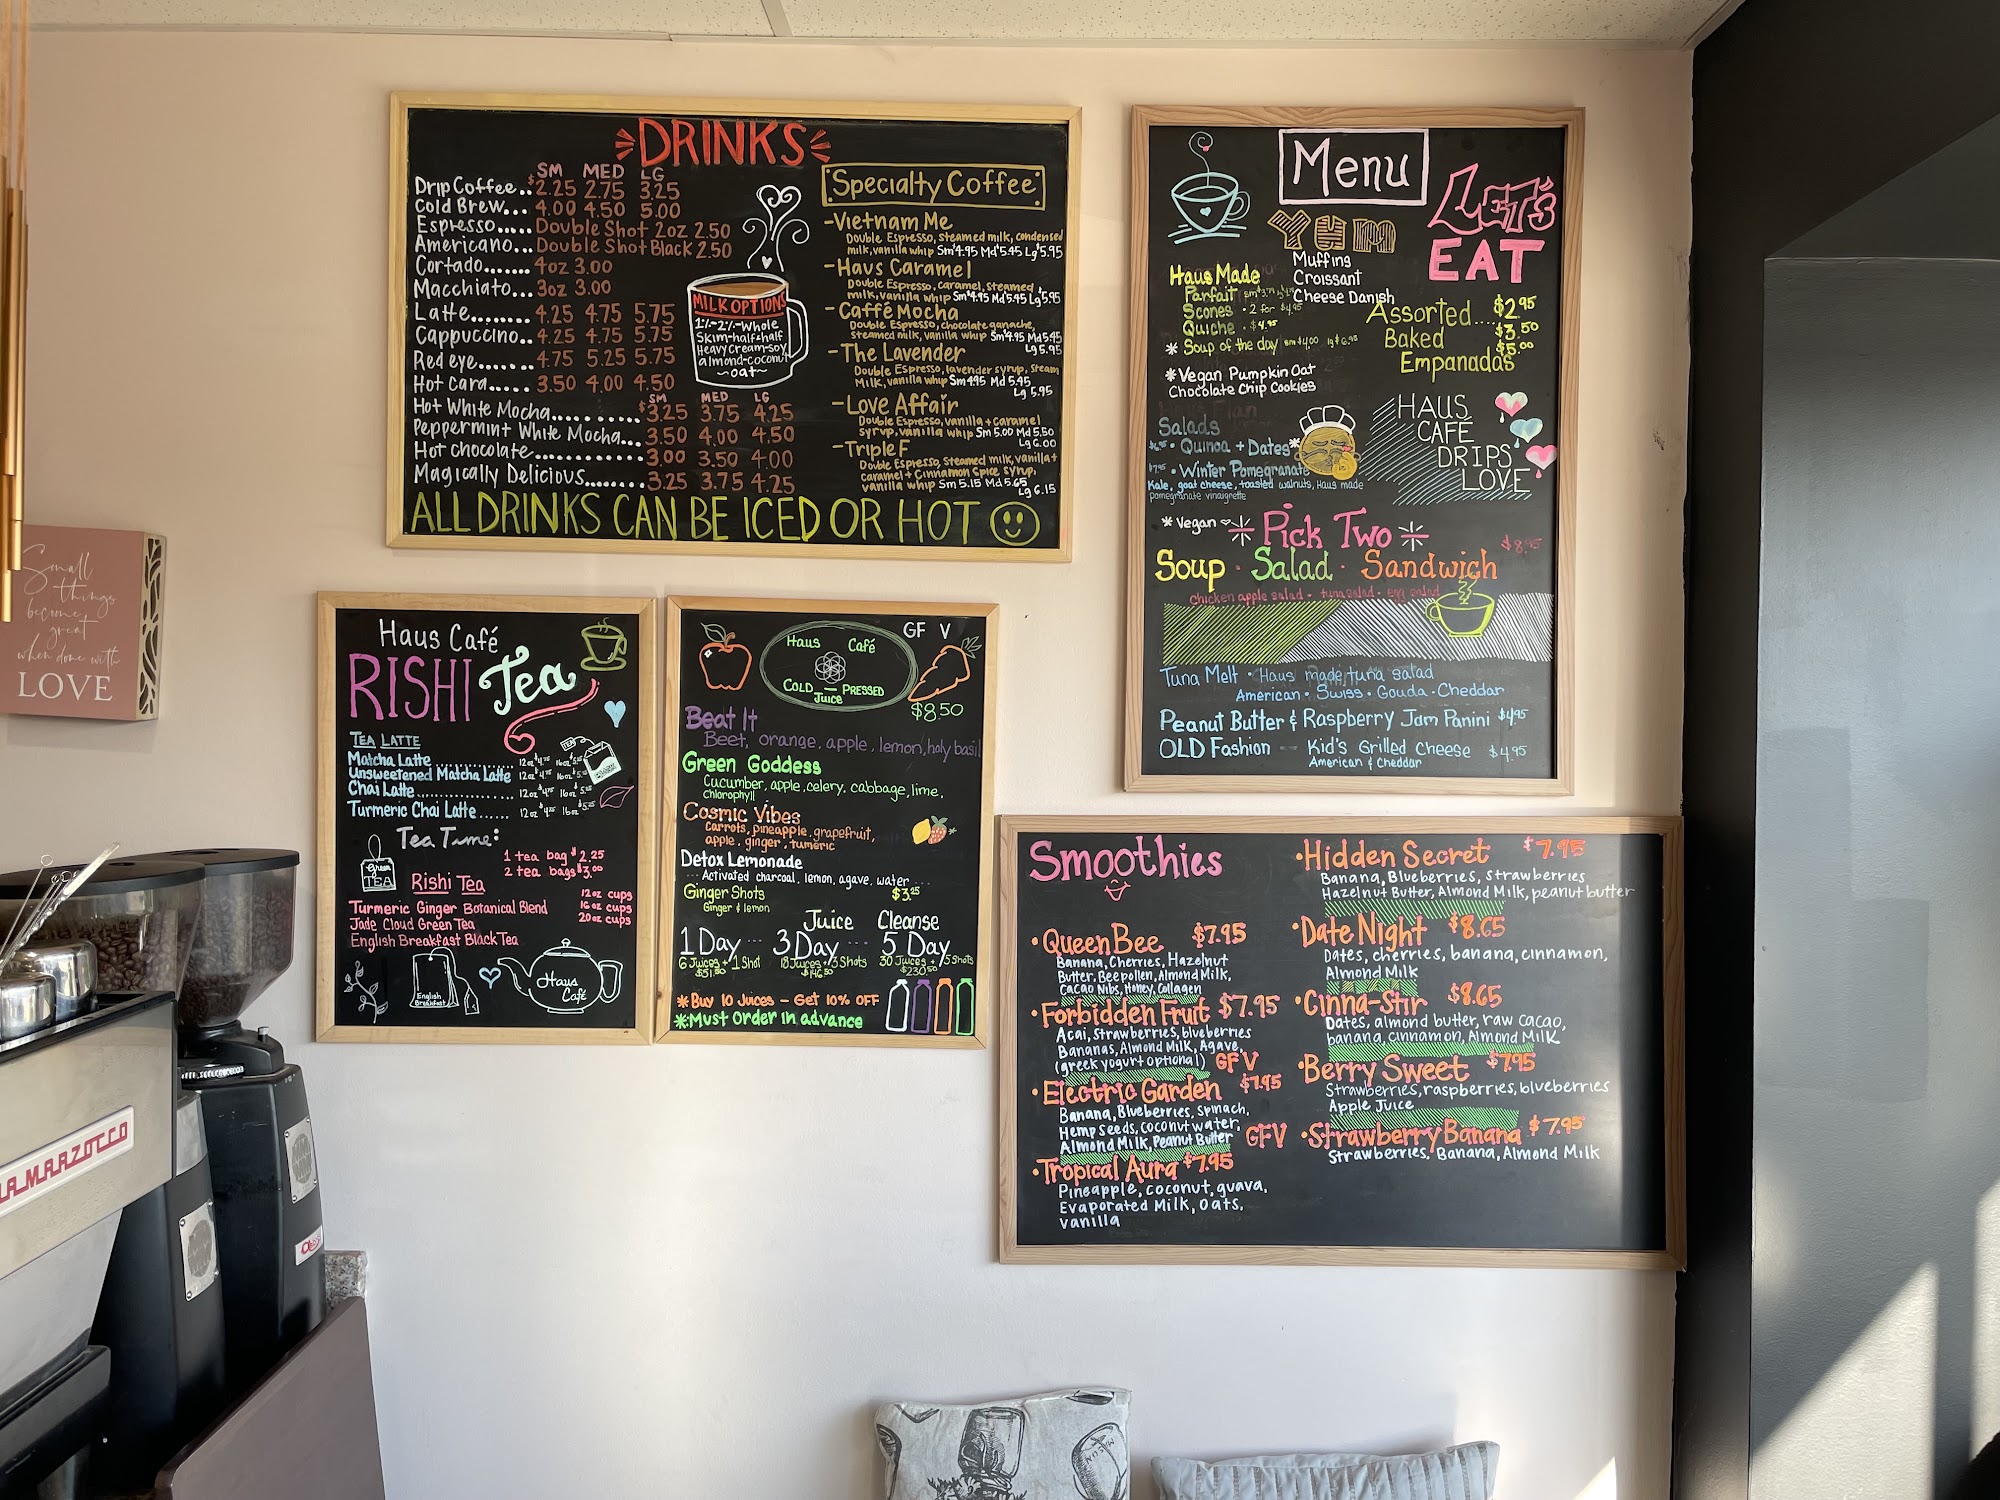 DRINKS
SM MED LG
Drip Coffee.. $2.25 2.75 3.25
Cold Brew... 4.00 4.50 5.00
Espresso..... Double Shot 2oz 2.50
Americano... Double Shot Black 2.50
Cortado....... 4oz 3.00
Macchiato... 3oz 3.00
Latte........ 4.25 4.75 5.75
Cappuccino.. 4.25 4.75 5.75
Red eye....... 4.75 5.25 5.75
Hot cara..... 3.50 4.00 4.50
SM MED LG
Hot White Mocha........... $3.25 3.75 4.25
Peppermint White Mocha... 3.50 4.00 4.50
Hot chocolate............. 3.00 3.50 4.00
Magically Delicious........ 3.25 3.75 4.25
MILK OPTIONS
1%-2%-Whole
Skim-half&half
Heavy Cream-soy
almond-coconut
~oat~
Specialty Coffee
-Vietnam Me
Double Espresso, steamed milk, condensed
milk, vanilla whip Sm $4.95 Md $5.45 Lg $5.95
-Haus Caramel
Double Espresso, caramel, steamed
milk, vanilla whip Sm $4.95 Md $5.45 Lg $5.95
-Caffé Mocha
Double Espresso, chocolate ganache,
steamed milk, vanilla whip Sm $4.95 Md 5.45
Lg 5.95
-The Lavender
Double Espresso, lavender syrup, steam
Milk, vanilla whip Sm 4.95 Md 5.45
Lg 5.95
-Love Affair
Double Espresso, vanilla + caramel
syrup, vanilla whip Sm 5.00 Md 5.50
Lg 6.00
-Triple F
Double Espresso, Steamed milk, vanilla +
caramel + Cinnamon Spice syrup,
vanilla whip Sm 5.15 Md 5.65
Lg 6.15
ALL DRINKS CAN BE ICED OR HOT
Menu
LET'S
EAT
YUM
Muffins
Croissant
Cheese Danish
Haus Made
Parfait
Scones · 2 for $4.95
Quiche · $4.95
* Soup of the day sm $4.00 lg $6.95
*Vegan Pumpkin Oat
Chocolate Chip Cookies
Assorted.... $2.95
Baked $3.50
Empanadas $5.00
Salads
· Quinoa + Dates*
$7.95 · Winter Pomegranate
Kale, goat cheese, toasted walnuts, Haus made
pomegranate vinaigrette
HAUS
CAFE
DRIPS
LOVE
* Vegan
Pick Two $8.95
Soup · Salad · Sandwich
chicken apple salad · tuna salad · egg salad
Tuna Melt · Haus made tuna salad
American · Swiss · Gouda · Cheddar
Peanut Butter & Raspberry Jam Panini $4.95
OLD Fashion -- Kid's Grilled Cheese $4.95
American & Cheddar
Small
things
become
great
when done with
LOVE
Haus Café
RISHI Tea
TEA LATTE
Matcha Latte 12oz $4.75 16oz
Unsweetened Matcha Latte 12oz $4.75 16oz
Chai Latte 12oz $4.75 16oz
Turmeric Chai Latte...... 12oz $4.75 16oz
TEA
Tea Time:
1 tea bag $2.25
2 tea bags $3.00
green
TEA
Rishi Tea
12oz cups
16oz cups
20oz cups
Turmeric Ginger Botanical Blend
Jade Cloud Green Tea
English Breakfast Black Tea
English
Breakfast
Haus
Café
GF V
Haus Café
COLD — PRESSED
Juice
$8.50
Beat It
Beet, orange, apple, lemon, holy basil
Green Goddess
Cucumber, apple, celery, cabbage, lime,
chlorophyll
Cosmic Vibes
carrots, pineapple, grapefruit,
apple, ginger, tumeric
Detox Lemonade
Activated charcoal, lemon, agave, water
Ginger Shots $3.25
Ginger & lemon
Juice Cleanse
1 Day ... 3 Day .... 5 Day
6 Juices + 1 Shot 18 Juices + 3 Shots 30 Juices + 5 Shots
$51.50 $146.50 $230.50
* Buy 10 Juices - Get 10% OFF
*Must Order in advance
Smoothies
·Queen Bee $7.95
Banana, Cherries, Hazelnut
Butter, Bee pollen, Almond Milk,
Cacao Nibs, Honey, Collagen
·Forbidden Fruit $7.95
Acai, Strawberries, blueberries
Bananas, Almond Milk, Agave,
(greek yogurt optional) GFV
·Electric Garden $7.95
Banana, Blueberries, Spinach,
Hemp Seeds, Coconut water,
Almond Milk, Peanut Butter GFV
·Tropical Aura $7.95
Pineapple, coconut, guava,
Evaporated Milk, Oats,
vanilla
·Hidden Secret $7.95
Banana, Blueberries, Strawberries
Hazelnut Butter, Almond Milk, peanut butter
·Date Night $8.65
Dates, cherries, banana, cinnamon,
Almond Milk
·Cinna-Stir $8.65
Dates, almond butter, raw cacao,
banana, cinnamon, Almond Milk
·Berry Sweet $7.95
Strawberries, raspberries, blueberries
Apple Juice
·Strawberry Banana $7.95
Strawberries, Banana, Almond Milk
LA MARZOCCO